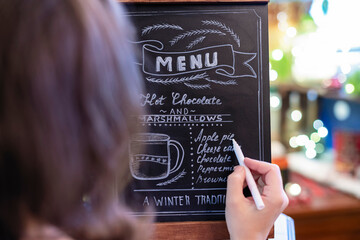 MENU
Hot Chocolate
AND
MARSHMALLOWS
Apple pie
Cheese
Chocolate
Peppermi
Brown
A WINTER TRADIT